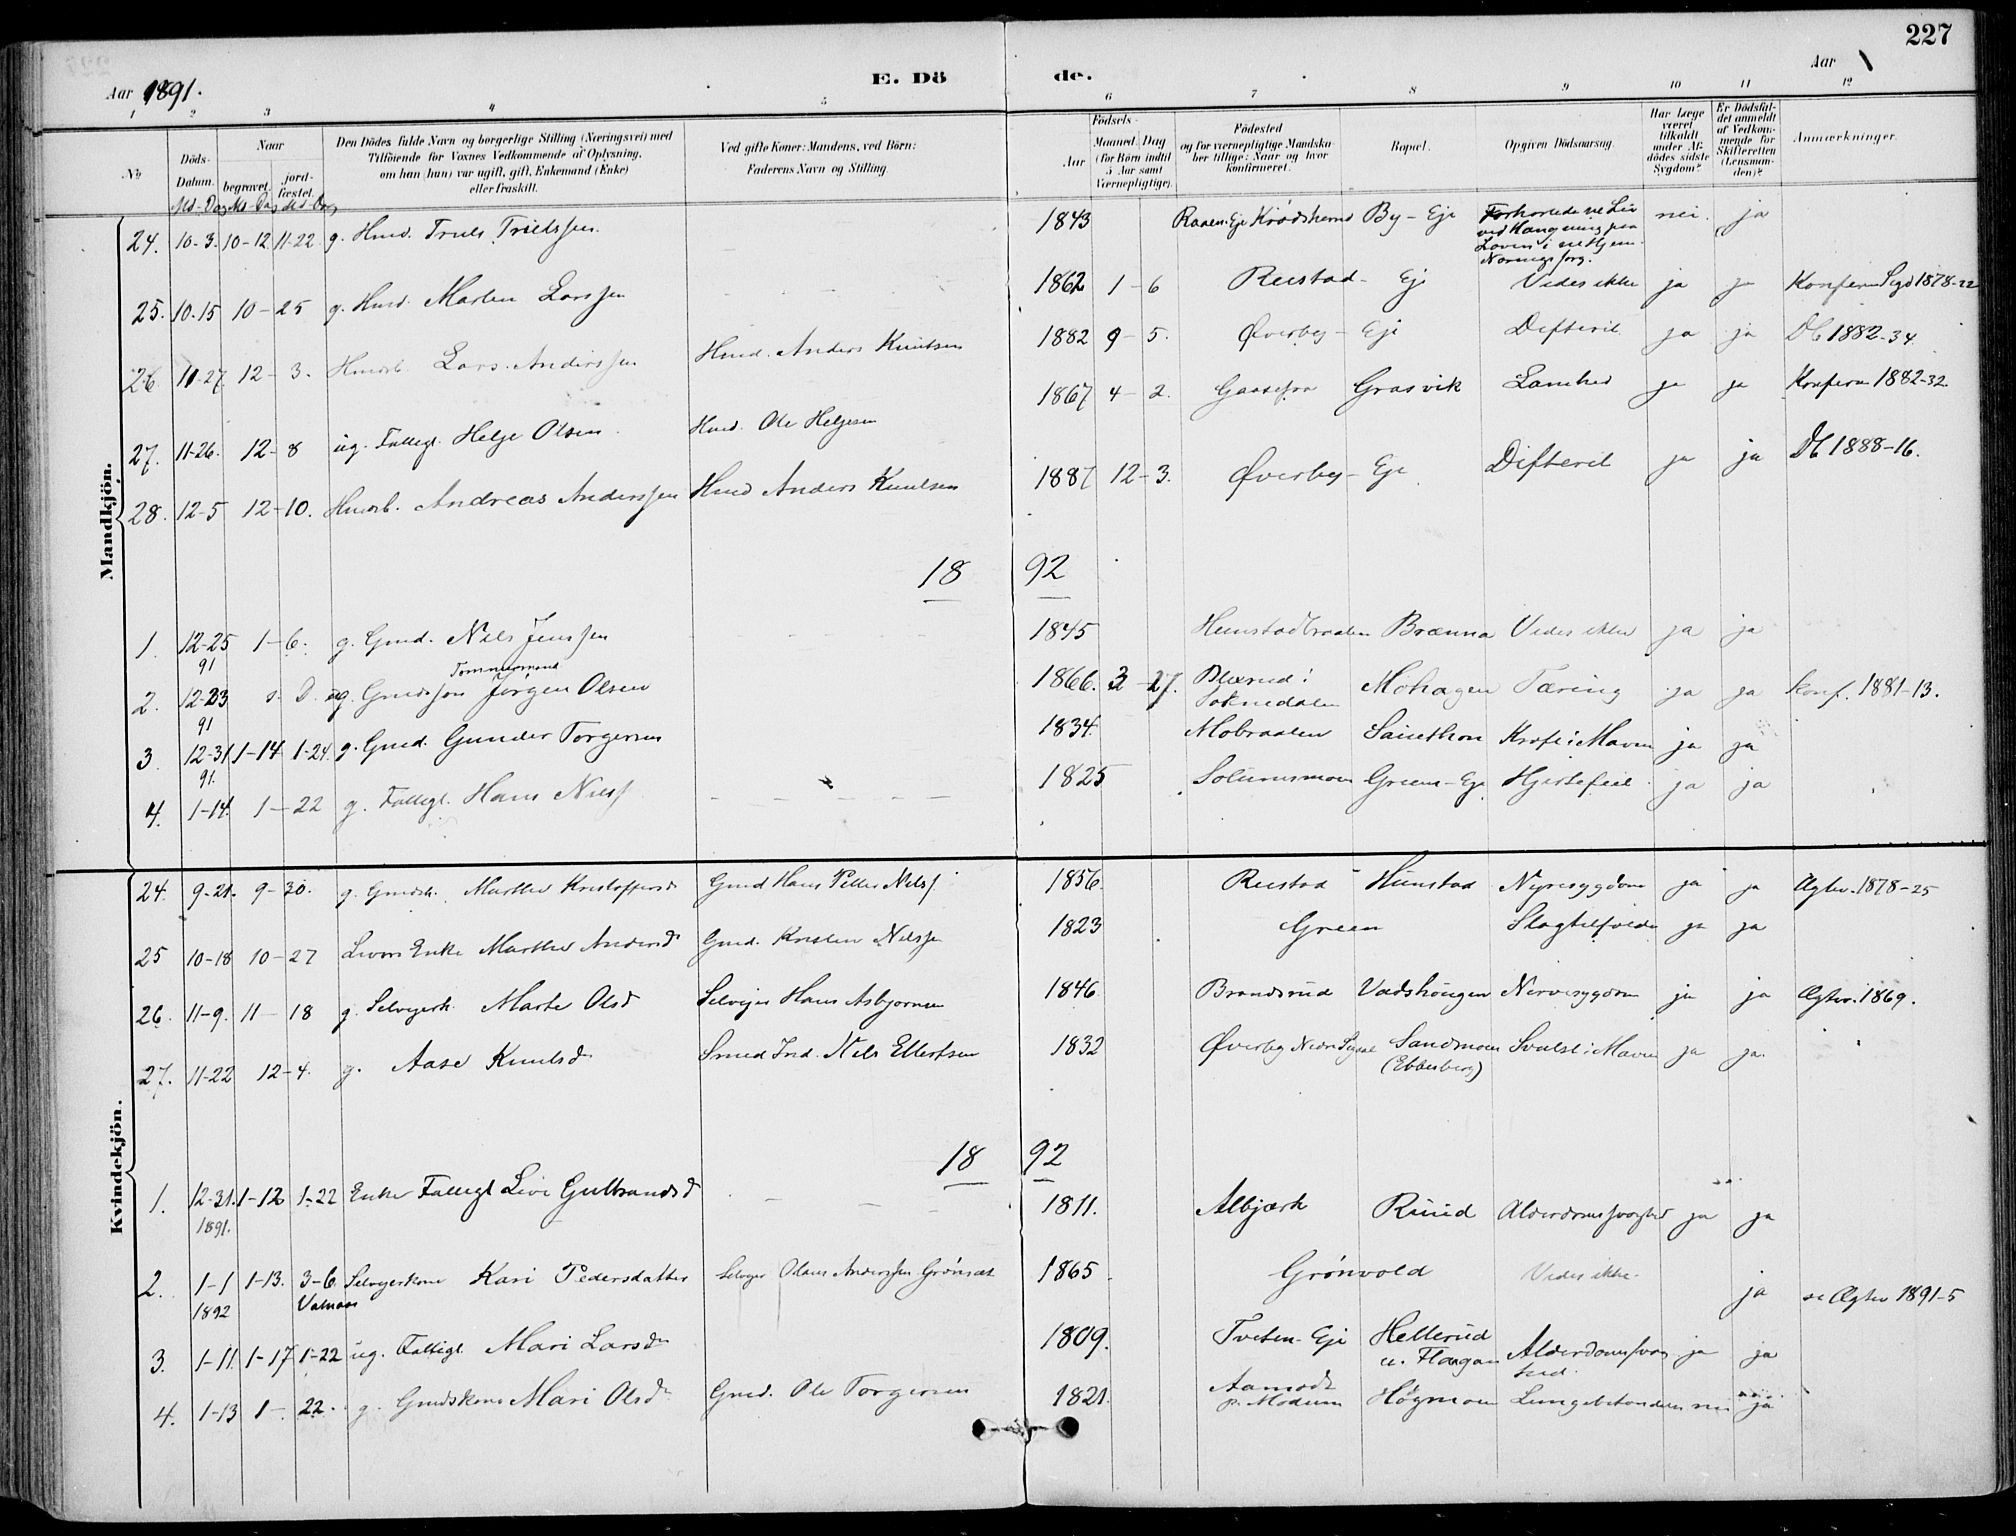 227
Aar 1891.
E. Dö
de.
Aar
1 2 3 4 5 6 7 8 9 10 11 12
No
Döds-Datum.
Naar
begravet.
jord-fæstet.
Den Dödes fulde Navn og borgerlige Stilling (Næringsvei) med
Tilföiende for Voxnes Vedkommende af Oplysning,
om han (hun) var ugift, gift, Enkemand (Enke)
eller fraskilt.
Ved gifte Koner: Mandens, ved Börn:
Faderens Navn og Stilling
Födsels-
Aar
Maaned Dag
(for Börn indtil
5 Aar samt
Værnepligtige).
Födested
og for værnepligtige Mandska-
ber tillige: Naar og hvor
konfirmeret.
Bopæl.
Opgiven Dödsaarsag.
Har Læge
været
tilkaldt
under Af-
dödes sidste
Sygdom?
Er Dödsfal-
det anmeldt
af Vedkom-
mende for
Skifteretten
(Lensman-
den)?
Anmærkninger.
Md-Dag Md-Dag Md-Dag
Mandkjön.
24. 10-3. 10-12 11-22. g. Hmd. Truls Trulssen. 1843 Raaen.Eje Krødsherred By-Eje Forkortede sit Liv ved Hængning paa Laaven i sit Hjem. Næringssorg. nei. ja
25. 10-15 10-25 g. Hmd. Marten Larssen 1862 1-6 Restad-Eje Vides ikke ja ja Konferm Sigd 1878-22
26 11-27 12-3. Hmdsb. Lars Anderssen Hmd. Anders Knutsen 1882 9-5. Øverby-Eje Difterit ja ja Db 1882-34
27. 11-26. 12-8 ug. Fattigl. Helge Olsen Hmd. Ole Helgesen 1867 4-2. Grasvik Lamhed ja ja Konferm 1882-32
28. 12-5 12-10. Hmdsb. Andreas Anderssen Hmd Anders Knutsen 1887 12-3. Øverby-Eje Difterit ja ja Db 1888-16.
18 92
1. 12-25 91 1-6. g. Gmd. Nils Jenssen 1845 Hunstadbraaten Brænna Vides ikke ja ja
2. 12-23 91 s. D. ug. Gmdssøn Tømmermand Jørgen Olsen 1866. 3-27. i Soknedalen Mohagen Tæring ja ja Konf. 1881-13.
3. 12-31 91. 1-14 1-24. g. Gmd. Gunder Torgersen 1834. Mobraaten Kræft i Maven ja ja
4. 1-14. 1-22 g. Fattigl. Hans Nilss 1825 Solumsmoen Green-Eje Hjertefeil ja ja
Kvindekjön.
24. 9-21. 9-30. g. Gmdsk. Marthe Kristoffersd Gmd Hans Petter Nilss 1856 Restad Hunstad Nyresygdom ja ja Ægtev. 1878-25
25 10-18 10-27 Enke Marthe Andersd Gmd. Kristen Nilssen 1823 Green Slagtilfælde ja ja
26. 11-9. 11-18 g. Selvejerk. Marte Olsd Selvejer Hans Asbjørnsen 1846 Brandsrud Vadshaugen Nervesygdom ja ja Ægtev. 1869.
27. 11-22 12-4. g. Aase Knutsd Smed Ind. Nils Ellertsen 1832 Øverby Nedre Sigdal Sandmoen (Ebbesberg) Svulst i Maven ja ja.
18 92
1. 12-31. 1891. 1-12 1-22 Enke Fattigl Live Gulbrandsd 1811. Albjærk Ruud Alderdomssvaghed ja ja
2. 1-1 1892 1-13. 3-6 Selvejerkone Kari Pedersdatter Selvejer Olaus Anderssen Grønset 1865 Grønvold Vides ikke. ja se Ægtev 1891-5
3. 1-11. 1-17 1-22 ug. Fattigl. Mari Larsd 1809. Tveten-Eje Hellerud u. Flaagan Alderdomssvaghed ja ja
4. 1-13 1-22. g. Gmdskone Mari Olsd Gmd. Ole Torgersen 1821. Aamodt p. Modum Høgmoen Lungebetændelse nei ja